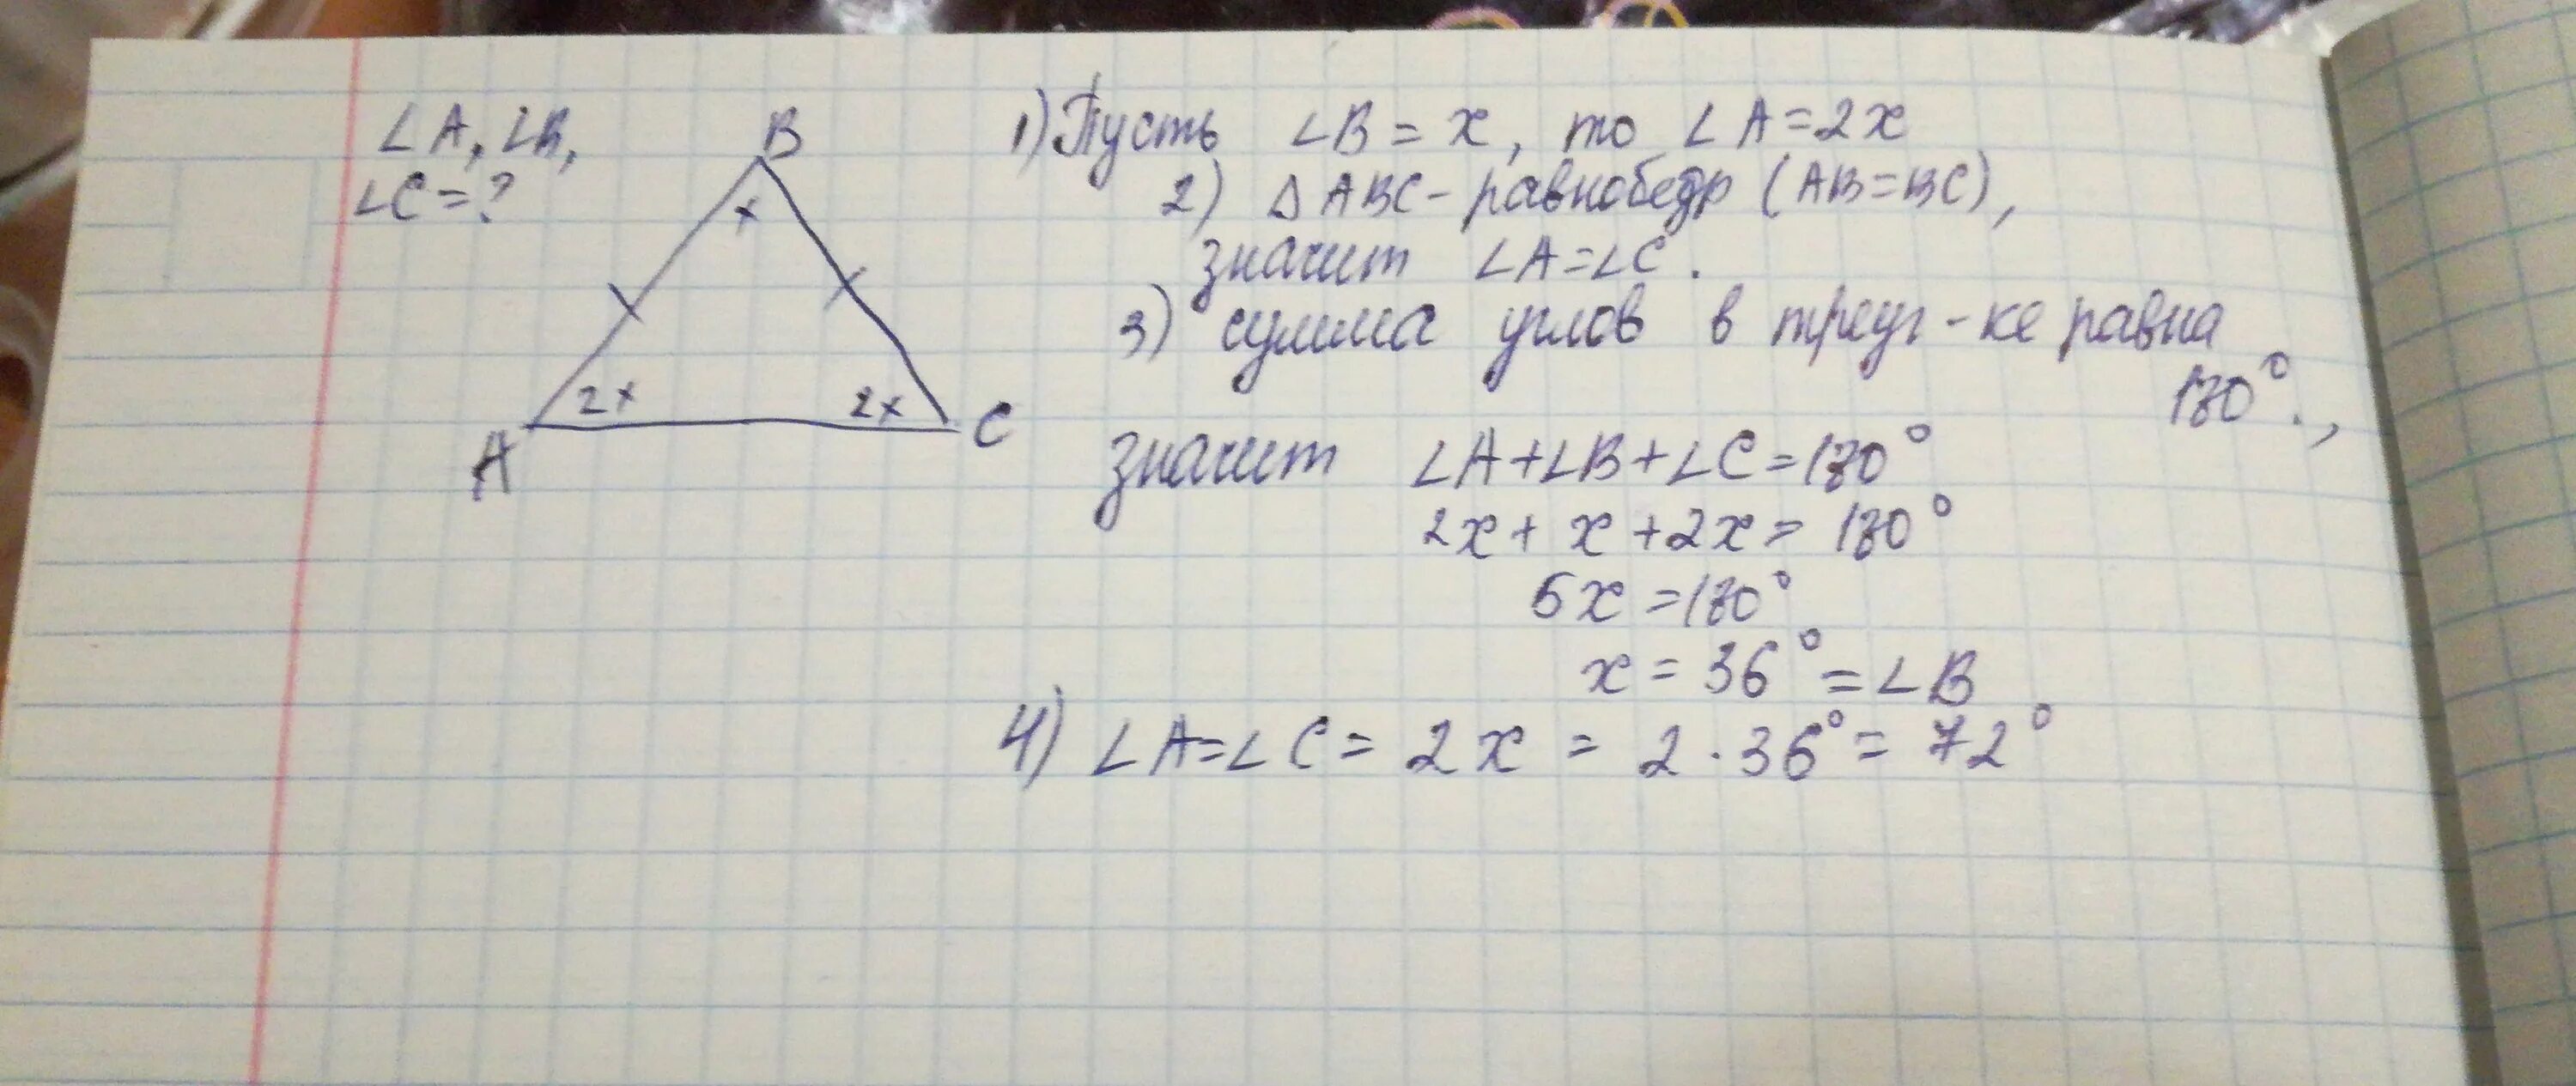 ∠A, ∠B,
∠C = ?
B
x
2x
2x
A
C
1) Пусть ∠B = x, то ∠A = 2x
2) △ABC - равнобедр (AB = BC),
значит ∠A = ∠C.
3) сумма углов в треуг-ке равна
180°.,
значит ∠A + ∠B + ∠C = 180°
2x + x + 2x = 180°
5x = 180°
x = 36° = ∠B
4) ∠A = ∠C = 2x = 2 · 36° = 72°